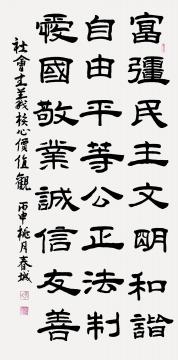 富彊民主文明和諧
自由平等公正法制
愛國敬業誠信友善
社會主義核心價值觀 丙申桃月春城